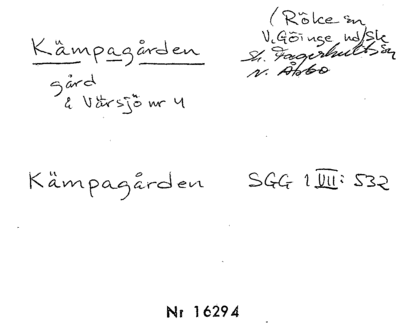 (Röke sn
V. Göinge hd/Sk
Kämpagården
St. Fagerhults sn
N. Åsbo
gård
å Värsjö nr 4
Kämpagården SGG 1 VII: 532
Nr 16294